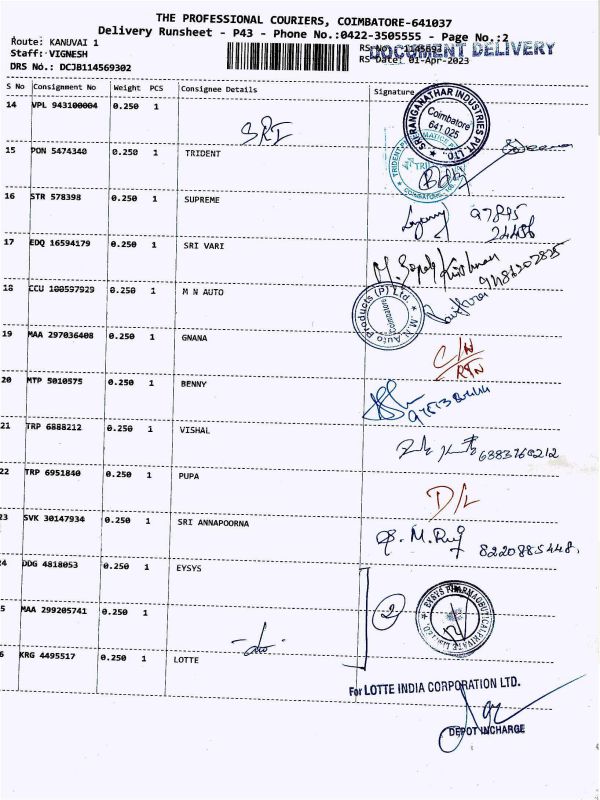 THE PROFESSIONAL COURIERS, COIMBATORE-641037
Delivery Runsheet - P43 - Phone No.:0422-3505555 - Page No.:2
Route: KANUVAI 1
Staff: VIGNESH
DRS No.: DCJB114569302
RS No.: 1145693
RS Date: 01-Apr-2023
DOCUMENT DELIVERY
S No Consignment No Weight PCS Consignee Details Signature
14 VPL 943100004 0.250 1 SRI
SRI RANGANATHAR INDUSTRIES PVT. LTD.
Coimbatore
641 025
15 PON 5474340 0.250 1 TRIDENT
16 STR 578398 0.250 1 SUPREME
97895
24486
17 EDQ 16594179 0.250 1 SRI VARI
M. Gopala Krishnan
9486202825
18 CCU 100597929 0.250 1 M N AUTO
M.N. Auto Products (P) Ltd.
Coimbatore
19 MAA 297036408 0.250 1 GNANA
C/N
RTN
20 MTP 5010575 0.250 1 BENNY
21 TRP 6888212 0.250 1 VISHAL
6383760212
22 TRP 6951840 0.250 1 PUPA
D/L
23 SVK 30147934 0.250 1 SRI ANNAPOORNA
8220885448.
24 DDG 4818053 0.250 1 EYSYS
2
EYSYS PHARMACEUTICAL PRIVATE LIMITED
5 MAA 299205741 0.250 1 -do-
6 KRG 4495517 0.250 1 LOTTE
For LOTTE INDIA CORPORATION LTD.
DEPOT INCHARGE